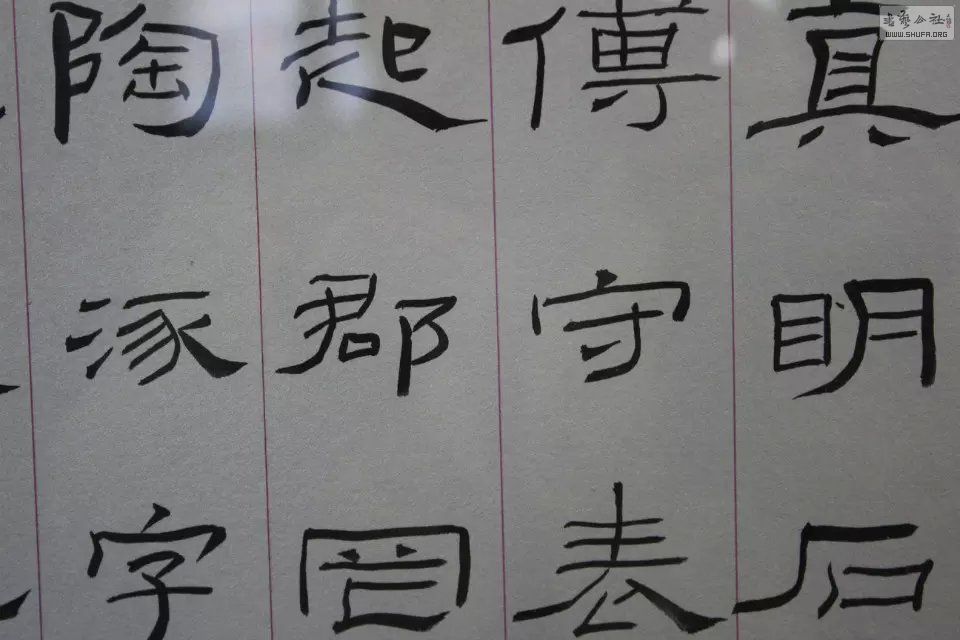 真明石
傅守表
起郡罔
陶涿字
書藝公社
WWW.SHUFA.ORG